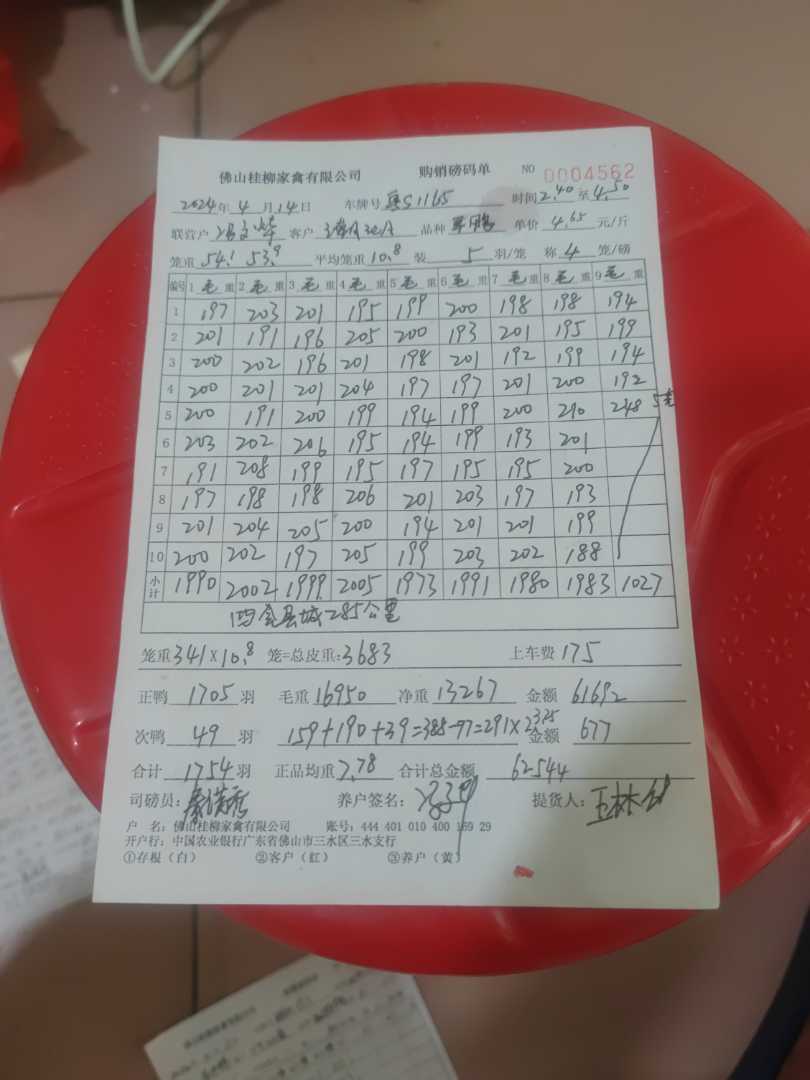 佛山桂柳家禽有限公司 购销磅码单 NO 0004562
2024年 4月14日 车牌号 粤S1165 时间2.40至4.50
联营户 客户 品种 单价 4.65 元/斤
笼重 54.1 53.9 平均笼重10.8 装 5 羽/笼 称 4 笼/磅
编号 1 毛 重 2 毛 重 3 毛 重 4 毛 重 5 毛 重 6 毛 重 7 毛 重 8 毛 重 9 毛 重
1 197 203 201 195 199 200 198 198 194
2 201 191 196 205 200 193 201 195 199
3 200 202 196 201 198 201 192 199 194
4 200 201 201 204 197 197 201 200 192
5 200 191 200 199 194 199 200 210 248 5笼
6 203 202 206 195 194 199 193 201
7 191 208 199 195 197 195 195 200
8 197 198 198 206 201 203 197 193
9 201 204 205 200 194 201 201 199
10 200 202 197 205 199 203 202 188
小计 1990 2002 1999 2005 1973 1991 1980 1983 1027
县城285公里
笼重341×10.8 笼=总皮重:3683 上车费 175
正鸭 1705 羽 毛重16950 净重 13267 金额 61692
次鸭 49 羽 159+190+39=388-97=291× 金额 677
合计 1754羽 正品均重7.78 合计总金额 62544
司磅员: 养户签名: 提货人:
户 名:佛山桂柳家禽有限公司 账号:444 401 010 400 169 29
开户行:中国农业银行广东省佛山市三水区三水支行
①存根(白) ②客户(红) ③养户(黄)